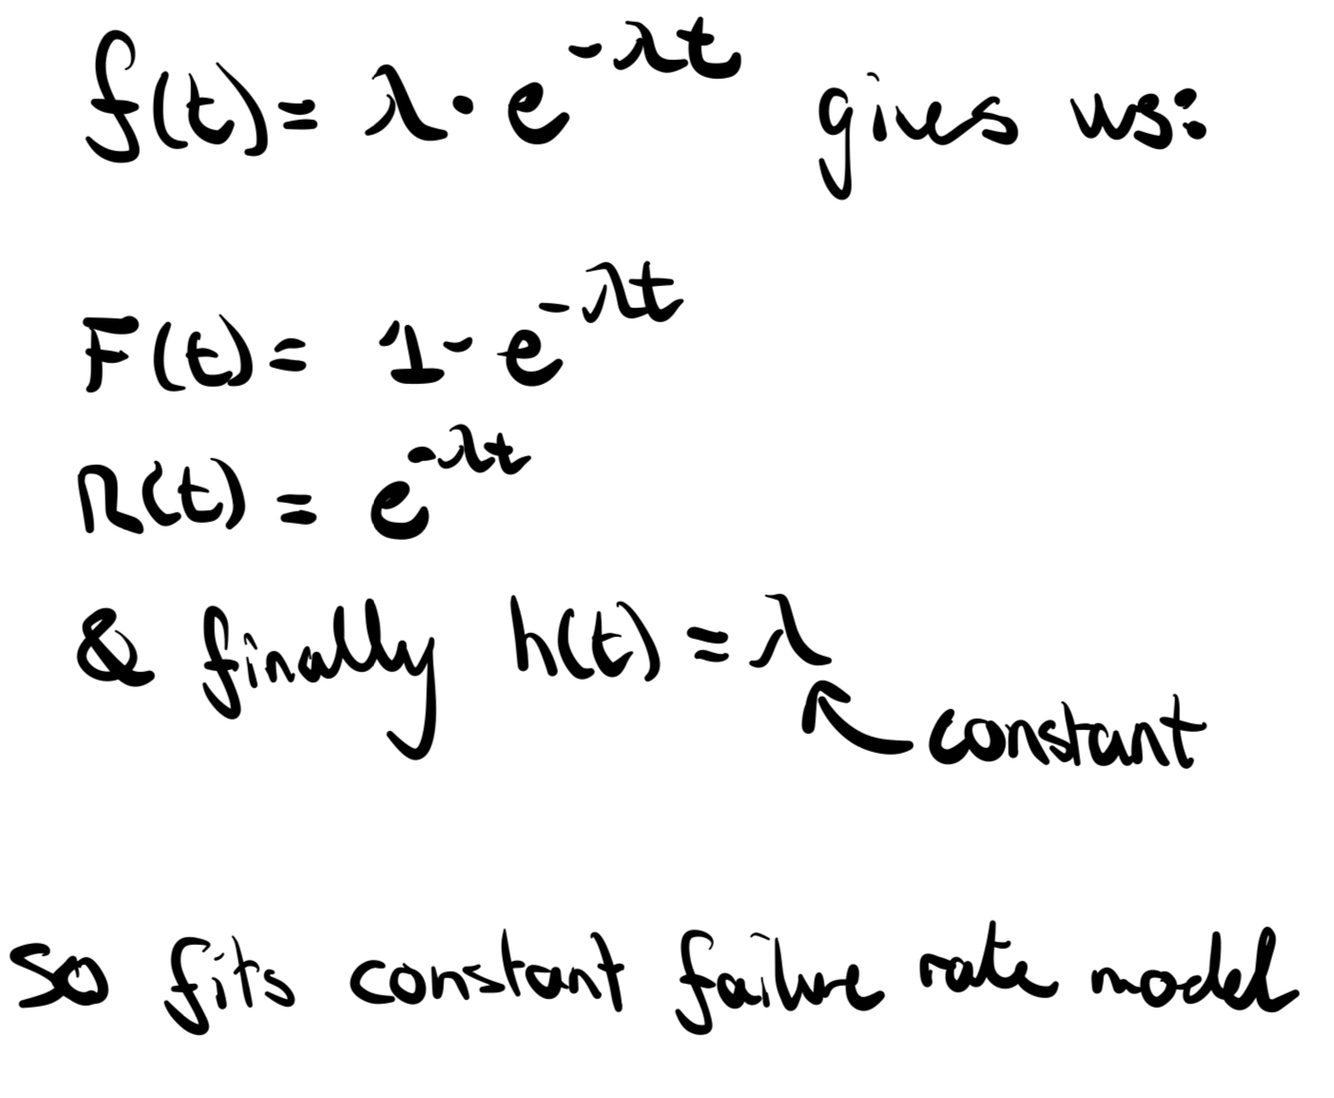 f(t) = λ · e^{-λt} gives us:
F(t) = 1 - e^{-λt}
R(t) = e^{-λt}
& finally h(t) = λ
↖ constant
so fits constant failure rate model